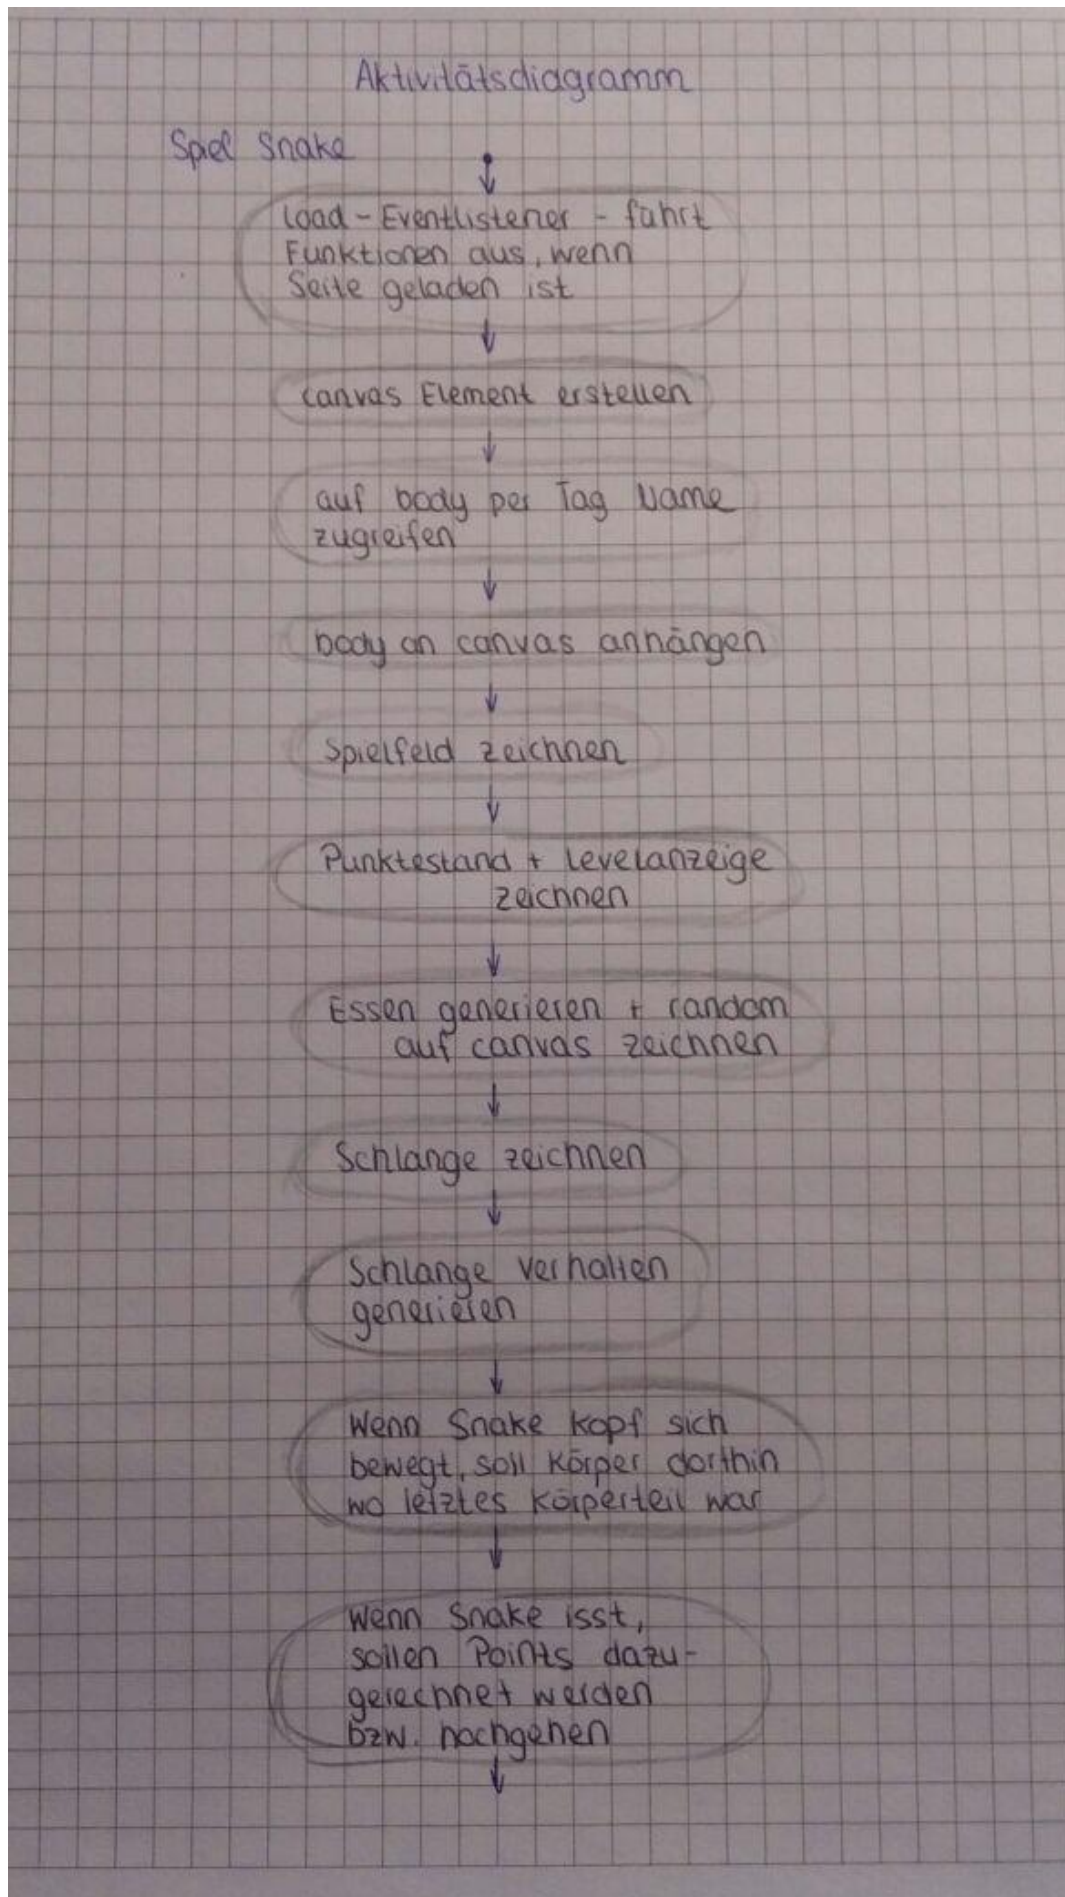 Aktivitätsdiagramm
Spiel Snake
Load-Eventlistener - führt
Funktionen aus, wenn
Seite geladen ist
canvas Element erstellen
auf body per Tag Name
zugreifen
body an canvas anhängen
Spielfeld zeichnen
Punktestand + Levelanzeige
zeichnen
Essen generieren + random
auf canvas zeichnen
Schlange zeichnen
Schlange verhalten
generieren
Wenn Snake Kopf sich
bewegt, soll Körper dorthin
wo letztes Körperteil war
Wenn Snake isst,
sollen Points dazu-
gerechnet werden
bzw. hochgehen